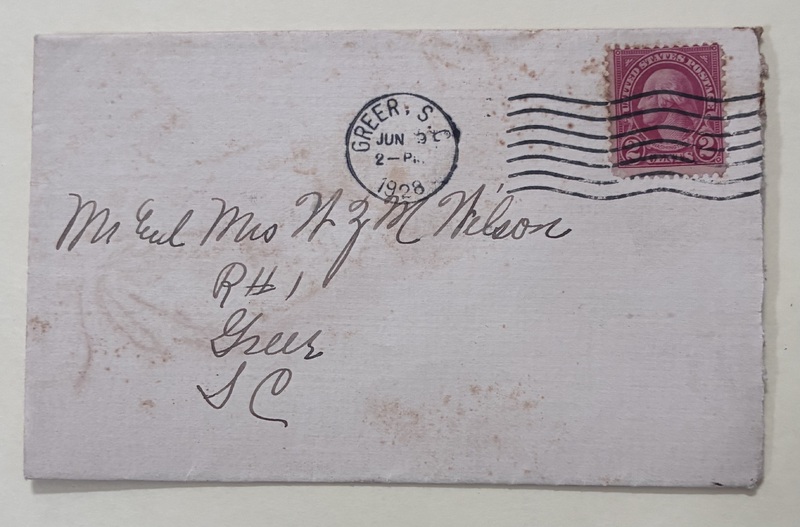 UNITED STATES POSTAGE
2 CENTS 2
GREER, S. C.
JUN 9
2-PM
1928
Mr Mrs W Z M Wilson
R # 1
Greer
S C